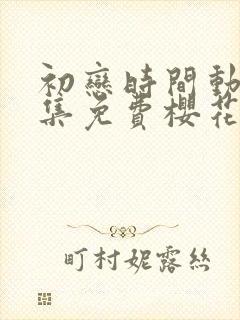 初戀時間動
集免費櫻花
町村妮露絲